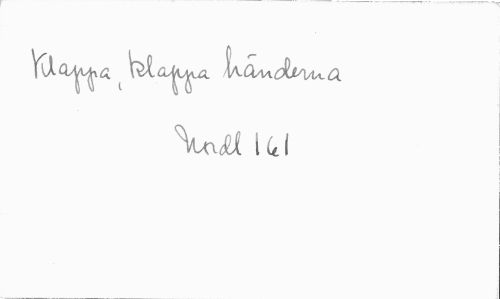 Klappa, klappa händerna
Nordl 161